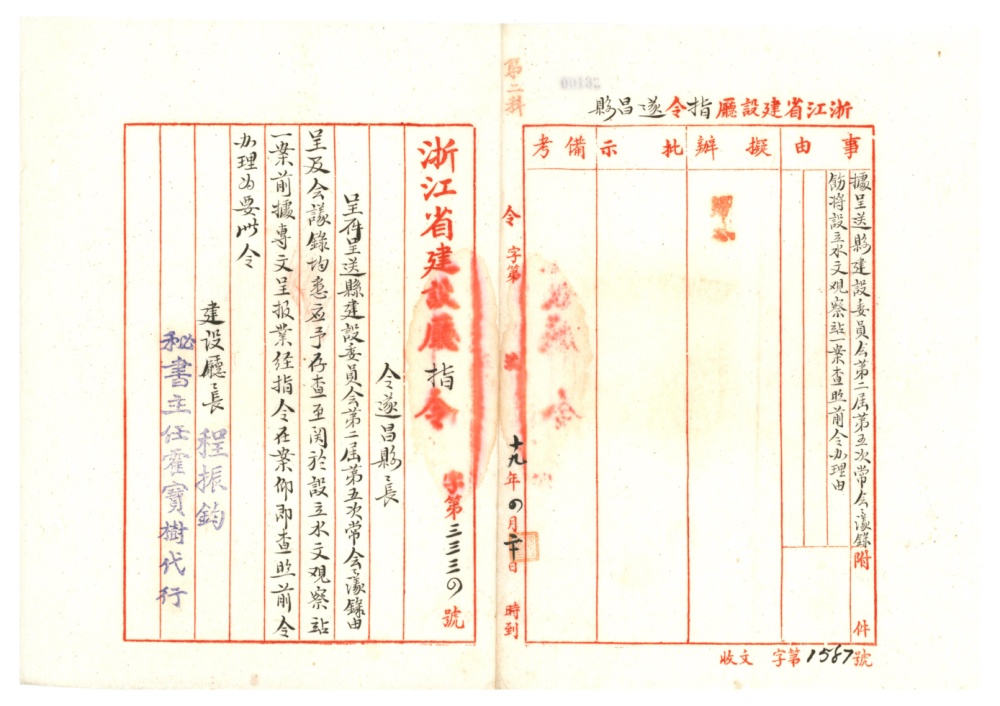 浙江省建設廳指令遂昌縣
事由
擬辦
批示
備考
據呈送縣建設委員会第二届第五次常会議錄
飭将設立水文观察站一案查照前令办理由
附件
收文 字第1567號
第二科
令 字第 號
十九年四月二十日 時到
浙江省建設廳指令 字第三三三〇號
令遂昌縣長
呈一件呈送縣建設委員会第二届第五次常会議錄由
呈及会議錄均悉应予存查至関於設立水文观察站
一案前據專文呈报業经指令在案仰即查照前令
办理为要此令
建设廳長 程振鈞
秘書主任霍寶樹代行